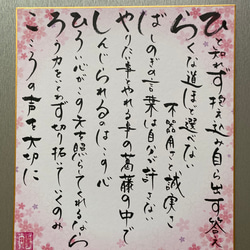 ひと知れず抱え込み自ら出す答え
らくな道ほど選べない
不器用さと誠実さ
ばしのぎの言葉は自分が許さない
やりたい事とやれる事の葛藤の中で
しんじられるのはこの心
ひろい心がこの先を照らしてくれるなら
ろう力をおしまず切り拓いていくのみ
こころの声を大切に